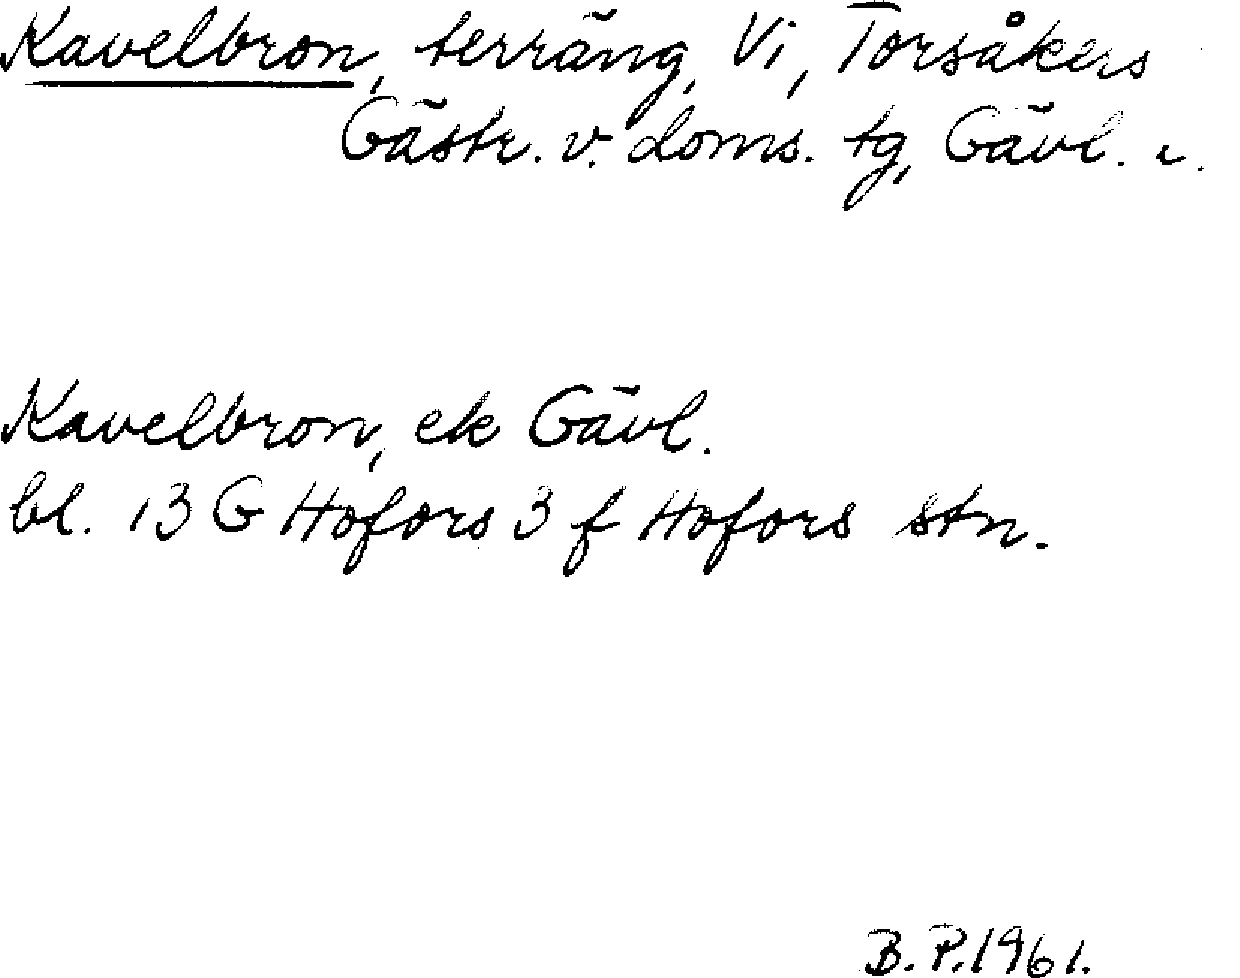 Kavelbron, terräng, Vi, Torsåkers
Gästr. v. doms. tg, Gävl. l.
Kavelbron, ek Gävl.
bl. 13 G Hofors 3 f Hofors stn.
B. P. 1961.